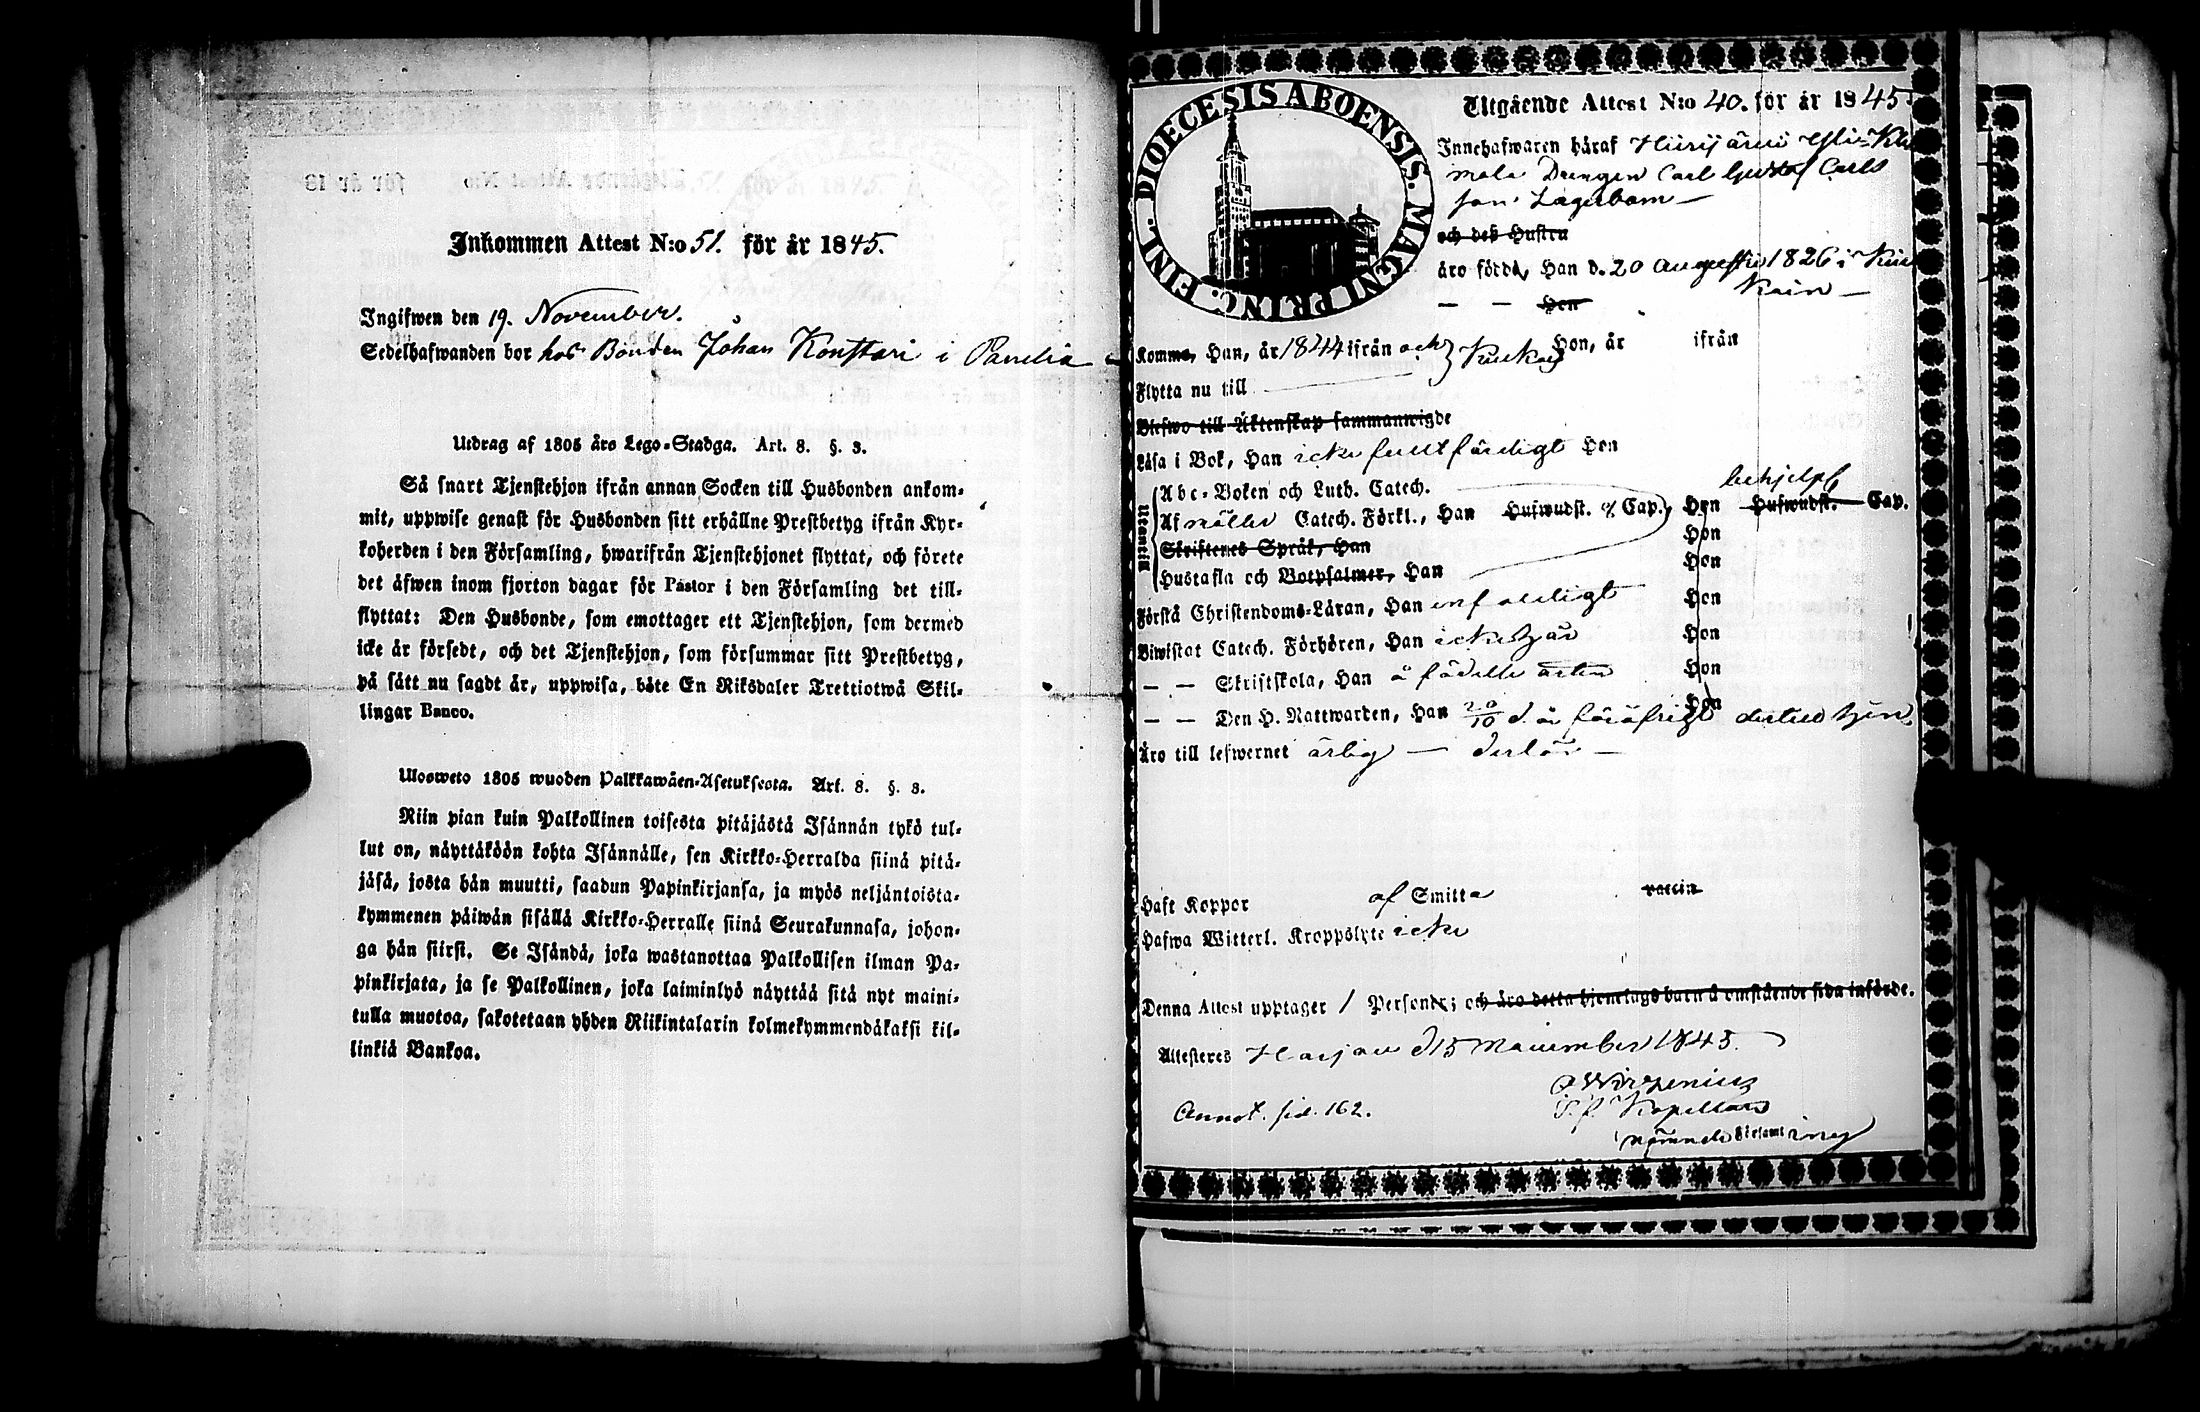 Inkommen Attest N:o 51. för år 1845.
Ingifwen den 19. November.
Sedelhafwanden bor hos Bonden Johan Konstari i Panelia
Utdrag af 1805 års Lego-Stadga. Art. 8. §. 3.
Så snart Tjenstehjon ifrån annan Socken till Husbonden ankom-
mit, uppwise genast för Husbonden sitt erhållne Prestbetyg ifrån Kyr-
koherden i den Församling, hwarifrån Tjenstehjonet flyttat, och förete
det äfwen inom fjorton dagar för Pastor i den Församling det till-
flyttat: Den Husbonde, som emottager ett Tjenstehjon, som dermed
icke är försedt, och det Tjenstehjon, som försummar sitt Prestbetyg,
på sätt nu sagdt är, uppwisa, böte En Riksdaler Trettiotwå Skil-
lingar Banco.
Ulosweto 1805 wuoden Palkkawäen-Asetuksesta. Art. 8. §. 3.
Niin pian kuin Palkollinen toisesta pitäjästä Isännän tykö tul-
lut on, näyttäköön kohta Isännälle, sen Kirkko-Herralda siinä pitä-
jäsä, josta hän muutti, saadun Papinkirjansa, ja myös neljäntoista-
kymmenen päiwän sisällä Kirkko-Herralle siinä Seurakunnasa, johon-
ga hän siirsi. Se Isändä, joka wastanottaa Palkollisen ilman Pa-
pinkirjata, ja se Palkollinen, joka laiminlyö näyttää sitä nyt maini-
tulla muotoa, sakotetaan yhden Riikintalarin kolmekymmendäkaksi kil-
linkiä Bankoa.
DIOECESIS ABOENSIS. MAGNI PRINC. FINL.
Utgående Attest N:o 40. för år 1845.
Innehafwaren häraf
mala Drengen Carl Gustaf Carls
son Lagerbom
och deß Hustru
äro födda, Han d. 20 Augusti 1826 i
Kain
Hon
Komma, Han, år 1844 ifrån och Hon, år ifrån
Flytta nu till
Blefwo till Äktenskap sammanwigde
Läsa i Bok, Han icke fullt färdigt Hon
behjelpl
Utantill
Abc-Boken och Luth. Catech.
Af Catech. Förkl., Han Hufwudst. Cap. Hon Hufwudst. Cap.
Skriftenes Språk, Han Hon
Hustafla och Botpsalmer, Han Hon
Förstå Christendoms-Läran, Han enfaldigt Hon
Biwistat Catech. Förhören, Han icke Hon
— — Skriftskola, Han å födelse orten Hon
— — Den H. Nattwarden, Han 20/10 d. år Hon
Äro till lefwernet ärlig —
Haft Koppor af Smitta vaccin
Hafwa Witterl. Kroppslyte icke
Denna Attest upptager 1 Personer; och äro detta hjonelags barn å omstående sida införde.
Attesteras Harjau d 15 November 1845.
Annot. sid. 162.
Kapellans
nämnde Församling